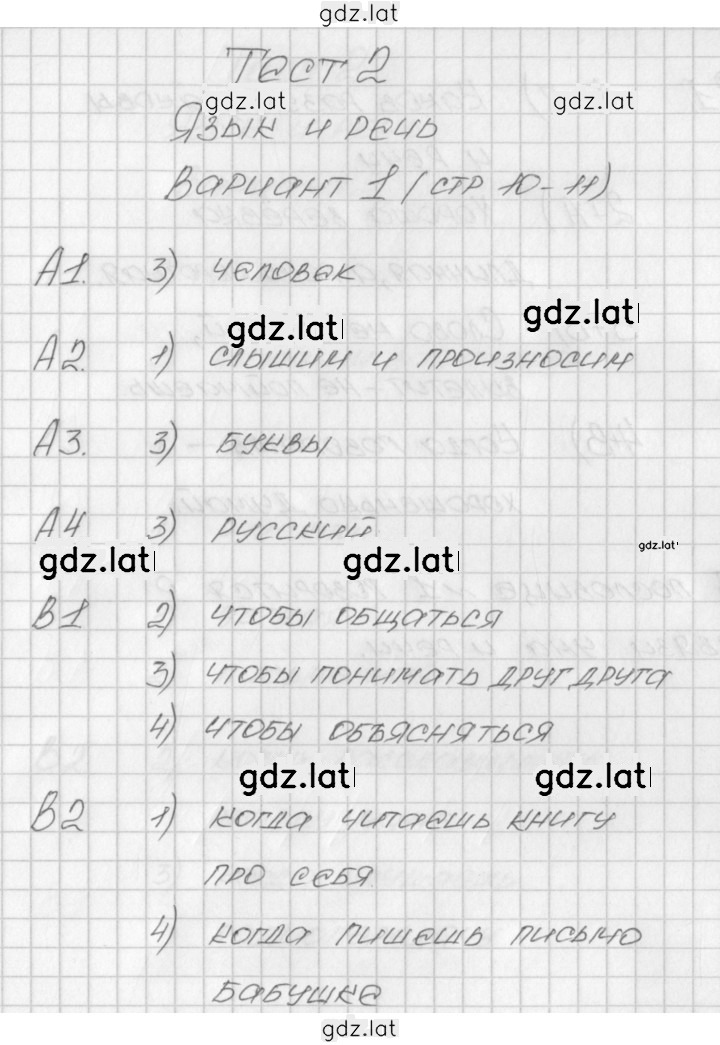 gdz.lat
Тест 2
gdz.lat gdz.lat
Язык и речь
Вариант 1 (стр 10-11)
А1. 3) человек
gdz.lat gdz.lat
А2. 1) слышим и произносим
А3. 3) буквы
А4 3) русский
gdz.lat gdz.lat gdz.lat
В1 2) чтобы общаться
3) чтобы понимать друг друга
4) чтобы объясняться
gdz.lat gdz.lat
В2 1) когда читаешь книгу
про себя
4) когда пишешь письмо
бабушке
gdz.lat